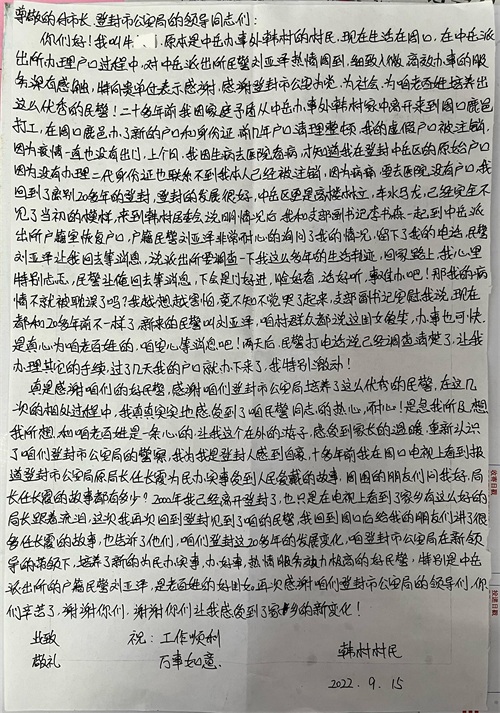 尊敬的何市长、登封市公安局的领导同志们：
你们好！我叫牛 1，原本是中岳办事处韩村的村民，现在生活在周口，在中岳派
出所办理户口过程中，对中岳派出所民警刘亚洋热情周到，细致入微，高效办事的服
务深有感触，特向贵单位表示感谢，感谢登封市公安局党、为社会、为咱老百姓培养出
这么优秀的民警！二十多年前我因家庭矛盾从中岳办事处韩村家中离开来到周口鹿邑
打工，在周口鹿邑办了新的户口和身份证，前几年户口清理整顿，我的虚假户口被注销，
因为疫情一直也没有出门，上个月，我因生病去医院看病，才知道我在登封中岳区的原始户口
因为没有办理二代身份证也联系不到我本人已经被注销，因为病痛，要去医院，没有户口，我
回到了离别20多年的登封，登封的发展很好，中岳区更是高楼林立，车水马龙，已经完全不
见了当初的模样，来到韩村居委会说明情况后，我和支部副书记李书森一起到中岳派
出所户籍室恢复户口，户籍民警刘亚洋非常耐心的询问了我的情况，留下了我的电话，民警
刘亚洋让我回去等消息，说派出所要调查一下我这么多年的生活轨迹，回家路上，我心里
特别忐忑，民警让俺回去等消息，不会是门好进，脸好看，话好听，事难办吧！那我的病
情不就被耽误了吗？我越想越害怕，竟不知不觉哭了起来，支部副书记安慰我说，现在
都和20多年前不一样了，新来的民警叫刘亚洋，咱村群众都说这闺女优秀，办事也可快，
是真心为咱老百姓的，咱安心等消息吧！两天后，民警打电话说已经调查清楚了，让我
办理其它的手续，过了几天我的户口就办下来了，我特别激动！
真是感谢咱们的好民警，感谢咱们登封市公安局培养了这么优秀的民警，在这几
次的相处过程中，我真真实实地感受到了咱民警同志的热心，耐心！是急我所及，想
我所想，和咱老百姓是一条心的，让我这个在外的游子，感受到家长的温暖，重新认识
了咱们登封市公安局的警察，我为我是登封人感到自豪，十多年前我在周口电视上看到报
道登封市公安局原局长任长霞为民办实事受到人民爱戴的故事，周围的朋友们问我好，局
长任长霞的故事都有多少？2000年我已经离开登封了，也只是在电视上看到了家乡有这么好的
局长跟着流泪，这次我再次回到登封见到了咱的民警，我回到周口后给我的朋友们讲了很
多任长霞的故事，也告诉了他们，咱们登封这20多年的发展变化，咱登封市公安局在新领
导的带领下，培养了新的为民办实事，办好事，热情服务效力极高的好民警，特别是中岳
派出所的户籍民警刘亚洋，是老百姓的好闺女，再次感谢咱们登封市公安局的领导们，你
们辛苦了，谢谢你们，谢谢你们让我感受到了家乡的新变化！
此致 祝：工作顺利
敬礼 万事如意． 韩村村民
2022．9．15
收寄日戳
投递日戳